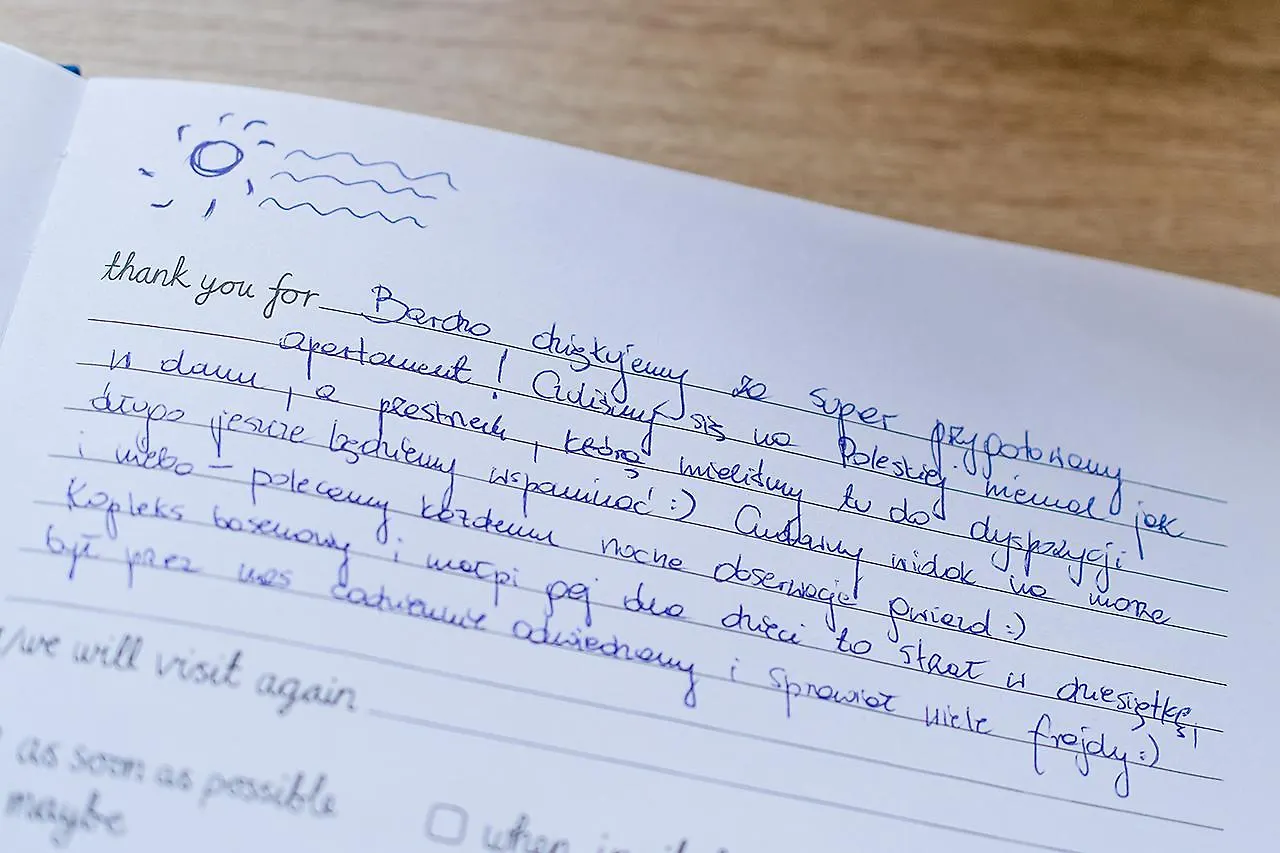 thank you for Bardzo dziękujemy za super przygotowany
apartament! Czuliśmy się na Poleskiej niemal jak
w domu, a przestrzeń, którą mieliśmy tu do dyspozycji
długo jeszcze będziemy wspominać :) Cudowny widok na morze
i niebo – polecamy każdemu nocne obserwacje gwiazd :)
Kopleks basenowy i małpi gaj dla dzieci to strzał w dziesiątkę,
był przez nas codziennie odwiedzany i sprawiał wiele frajdy :)
/we will visit again
as soon as possible
maybe
when